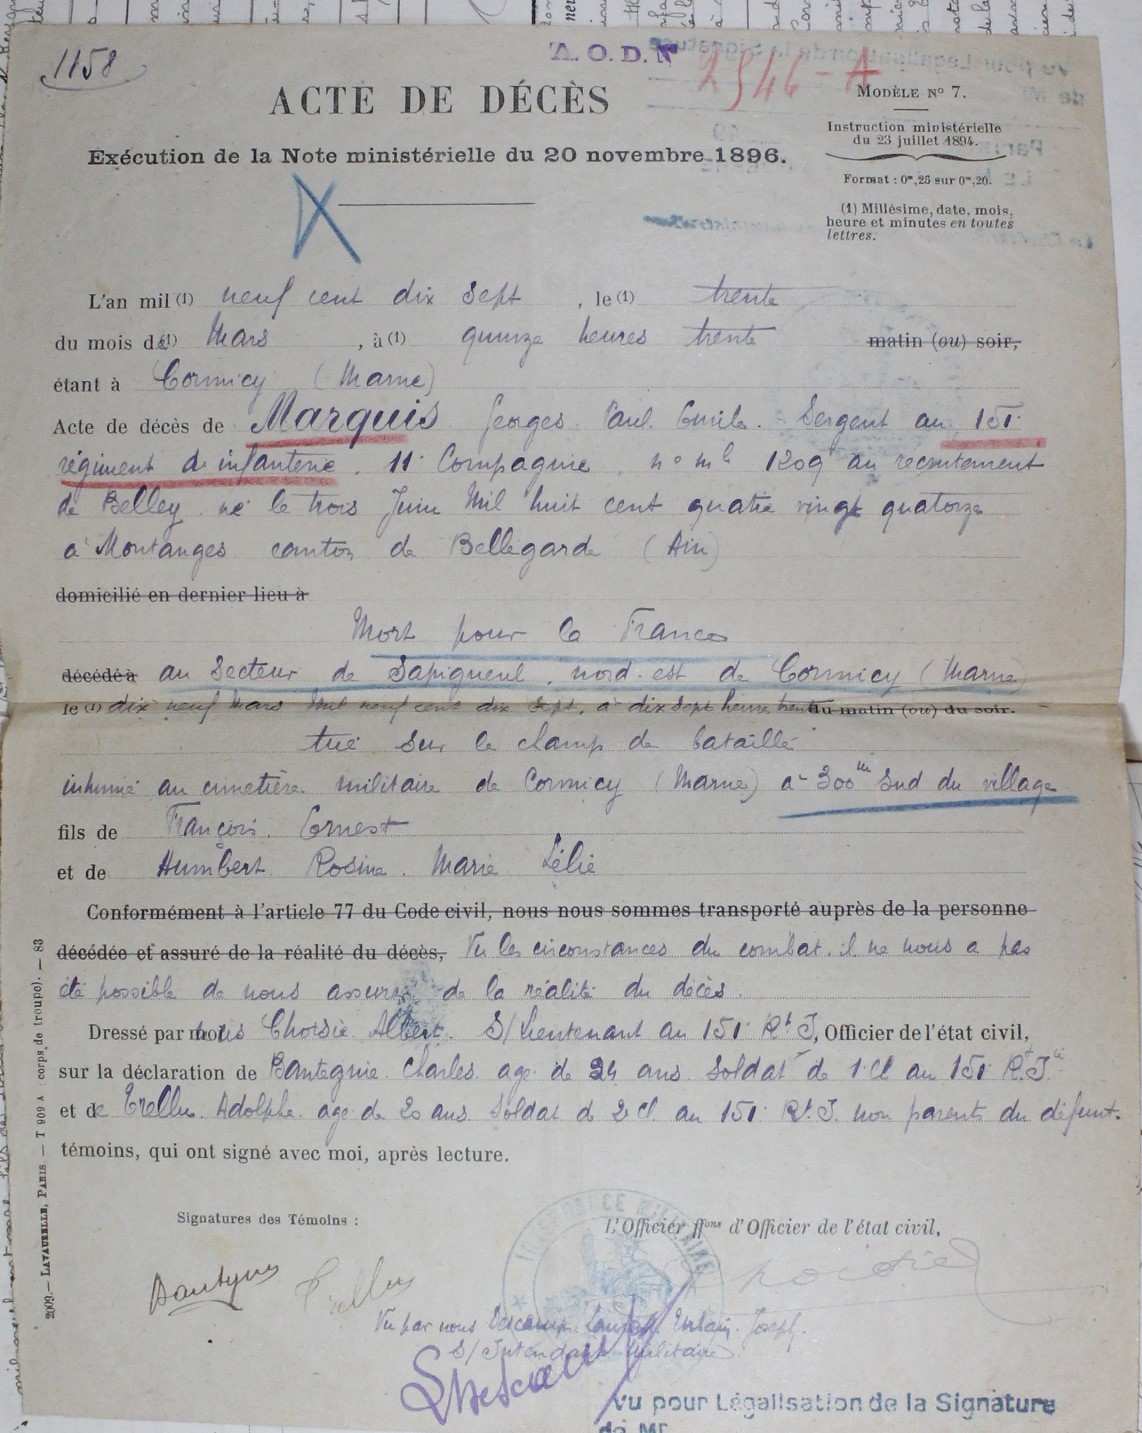 1158
A.O.D. N° 2946-A
ACTE DE DÉCÈS
MODÈLE N° 7.
Instruction ministérielle
du 23 juillet 1894.
Exécution de la Note ministérielle du 20 novembre 1896.
Format : 0m,25 sur 0m,20.
(1) Millésime, date, mois,
heure et minutes en toutes
lettres.
L'an mil (1) neuf cent dix sept, le (1) trente
du mois de (1) Mars, à (1) quinze heures trente matin (ou) soir,
étant à Cormicy (Marne)
Acte de décès de Marquis Georges Paul Emile. Sergent au 151e
régiment de infanterie. 11e Compagnie. n° mle 1209 au recrutement
de Belley né le trois Juin Mil huit cent quatre vingt quatorze
à Montanges canton de Bellegarde (Ain)
domicilié en dernier lieu à
Mort pour la France
décédé à au Secteur de Sapigneul, nord-est de Cormicy (Marne)
le (1) dix neuf Mars Mil neuf cent dix sept, à dix sept heures trente du matin (ou) du soir.
tué sur le champ de bataille
inhumé au cimetière militaire de Cormicy (Marne) à 300m Sud du village
fils de François Ernest
et de Humbert Rosine Marie Lélie
Conformément à l'article 77 du Code civil, nous nous sommes transporté auprès de la personne
décédée et assuré de la réalité du décès, Vu les circonstances du combat, il ne nous a pas
été possible de nous assurer de la réalité du décès.
Dressé par nous Choisie Albert. S/Lieutenant au 151e Rt I, Officier de l'état civil,
sur la déclaration de Charles age de 24 ans Soldat de 1e Cl au 151e Rt Iie
et de Trellu Adolphe age de 20 ans Soldat de 2e Cl. au 151e Rt I. non parents du défunt.
témoins, qui ont signé avec moi, après lecture.
2009. — LAVAUZELLE, PARIS — T 909 A (corps de troupe). — 83
Signatures des Témoins :
L'Officier ffons d'Officier de l'état civil,
Trellu
Vu par nous Joseph
S/Intendant Militaire
Vu pour Légalisation de la Signature
de Mr